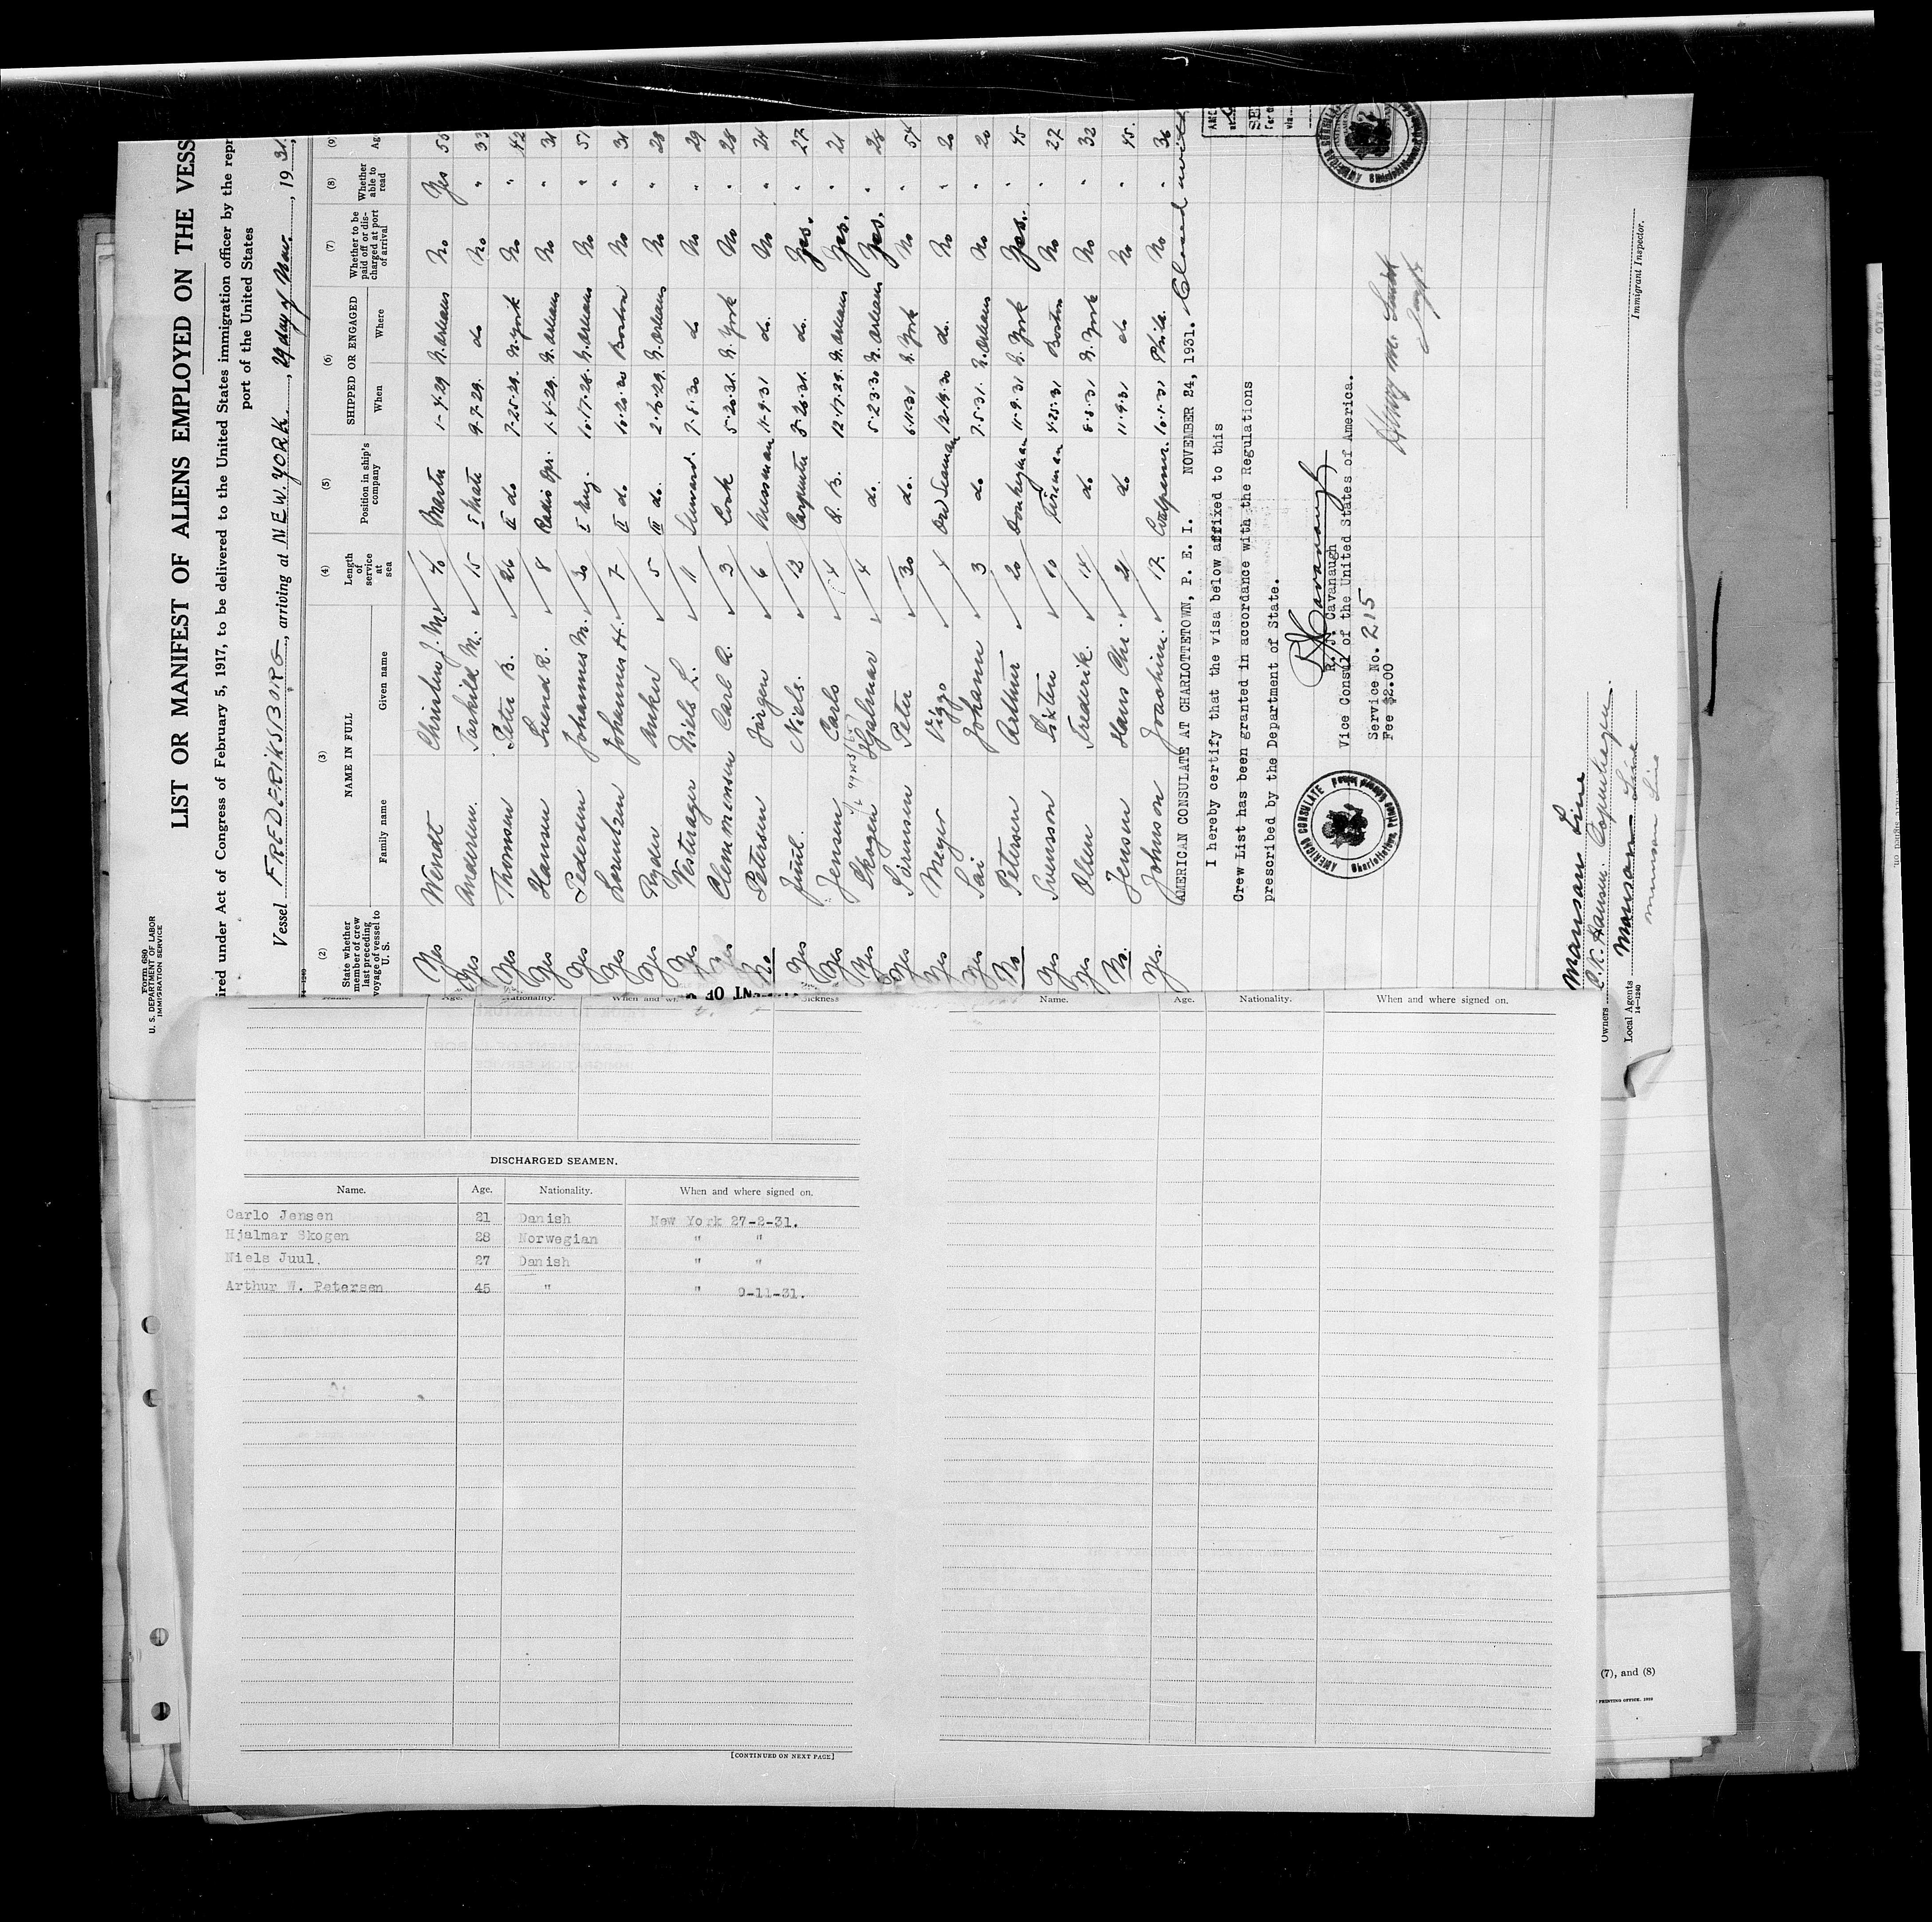 Form 680
U. S. DEPARTMENT OF LABOR
IMMIGRATION SERVICE
LIST OR MANIFEST OF ALIENS EMPLOYED ON THE VESS
ired under Act of Congress of February 5, 1917, to be delivered to the United States immigration officer by the repr
port of the United States
Vessel FREDERIKSBORG, arriving at NEW YORK, 29 day of Nov., 1931.
14—1240
(2) (3) (4) (5) (6) (7) (8) (9)
State whether member of crew last preceding voyage of vessel to U. S. NAME IN FULL Length of service at sea Position in ship's company SHIPPED OR ENGAGED Whether to be paid off or discharged at port of arrival Whether able to read Ag
Family name Given name When Where
Yes Wendt Christen J. M. 40 Master 1-4-29 N. Orleans No Yes 55
Yes Andersen. Tarkild M. 15 I Mate 9-7-29. do No " 33
Yes Thomsen Peter B. 26 II do 7-25-29. N. York No " 42
Yes Hansen Svend R. 8 Radio Opr. 1-4-29. N. Orleans No " 31
Yes Pedersen Johannes M. 30 I Eng. 10-17-28. N. Orleans No " 51
Yes Lauritzen Johannes H. 7 II do. 10-20-30 Boston No " 31
Yes Ryden Anker 5 III do. 2-6-29. N. Orleans No " 28
Yes Vestrager Niels L. 11 Steward. 7-8-30 do No " 29
Yes Clemmensen Carl A. 3 Cook 5-20-31. N. York No " 28
No Petersen Jörgen 6 Messman 11-9-31 do. No " 24
Yes Juul. Niels. 12 Carpenter 3-26-31. do. Yes. " 27
Yes Jensen Carlo 4 A. B. 12-17-29. N. Orleans Yes. " 21
Yes Skogen Hjalmar 4 do. 5-23-30 N. Orleans Yes. " 28
Yes Sörensen Peter 30 do. 6-11-31 N. York No " 54
Yes Meyer Viggo 4 Ord Seaman 12-19-30 do. No " 20
Yes Sai Johann 3 do 7-5-31. N. Orleans No " 20
No Petersen Arthur 20 Donkeyman 11-9-31 N. York Yes. " 45
Yes Svensson Sixten 10 Fireman 4-25-31 Boston No " 27
Yes Olsen Frederik. 14 do 8-8-31 N. York No " 32
No. Jensen Hans Chr. 21 do 11-9-31 do No " 45.
Yes. Johnson Joachim. 17. Coalpasser. 10-1-31 Phila. No " 36
AMERICAN CONSULATE AT CHARLOTTETOWN, P. E. I. NOVEMBER 24, 1931. Closed with
I hereby certify that the visa below affixed to this
Crew List has been granted in accordance with the Regulations
prescribed by the Department of State.
R. J. Cavanaugh
Vice Consul of the United States of America.
Service No. 215
Fee $2.00
AMERICAN CONSULATE
Immigrant Inspector.
Munson Line
Owners C. K. Hansen. Copenhagen.
Local Agents Munson Line
Munson Line
14—1240
Name. Age. Nationality. When and wh Sickness
Name. Age. Nationality. When and where signed on.
DISCHARGED SEAMEN.
Name. Age. Nationality. When and where signed on.
Carlo Jensen 21 Danish New York 27-2-31.
Hjalmar Skogen 28 Norwegian " "
Niels Juul. 27 Danish " "
Arthur W. Petersen 45 " " 9-11-31.
[CONTINUED ON NEXT PAGE]
(7), and (8)
PRINTING OFFICE.